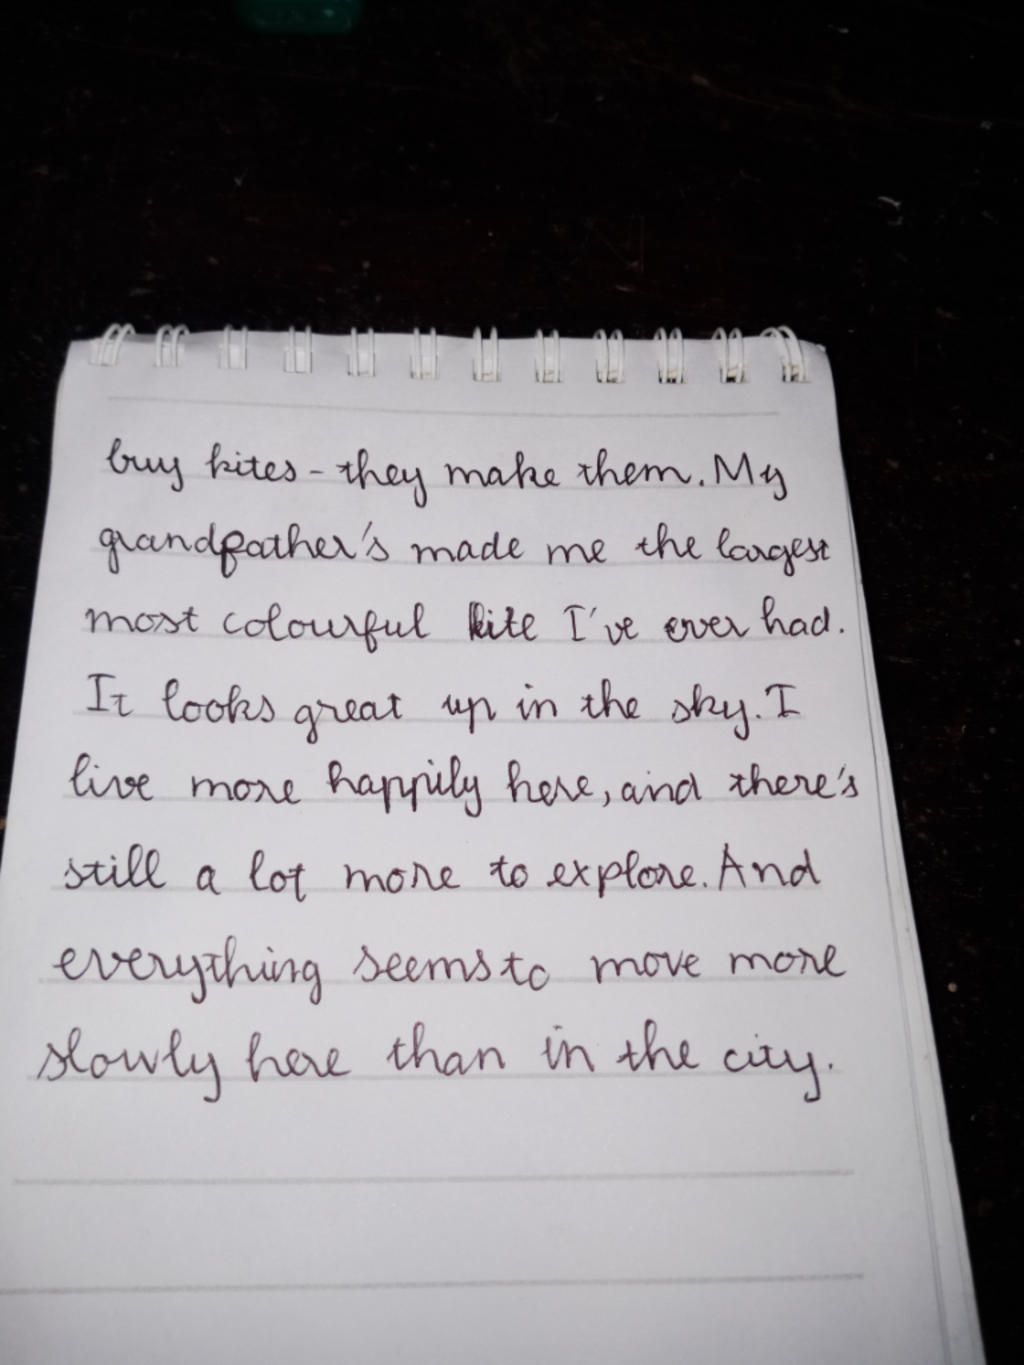 buy kites - they make them. My
grandfather's made me the largest
most colourful kite I've ever had.
It looks great up in the sky. I
live more happily here, and there's
still a lot more to explore. And
everything seems to move more
slowly here than in the city.